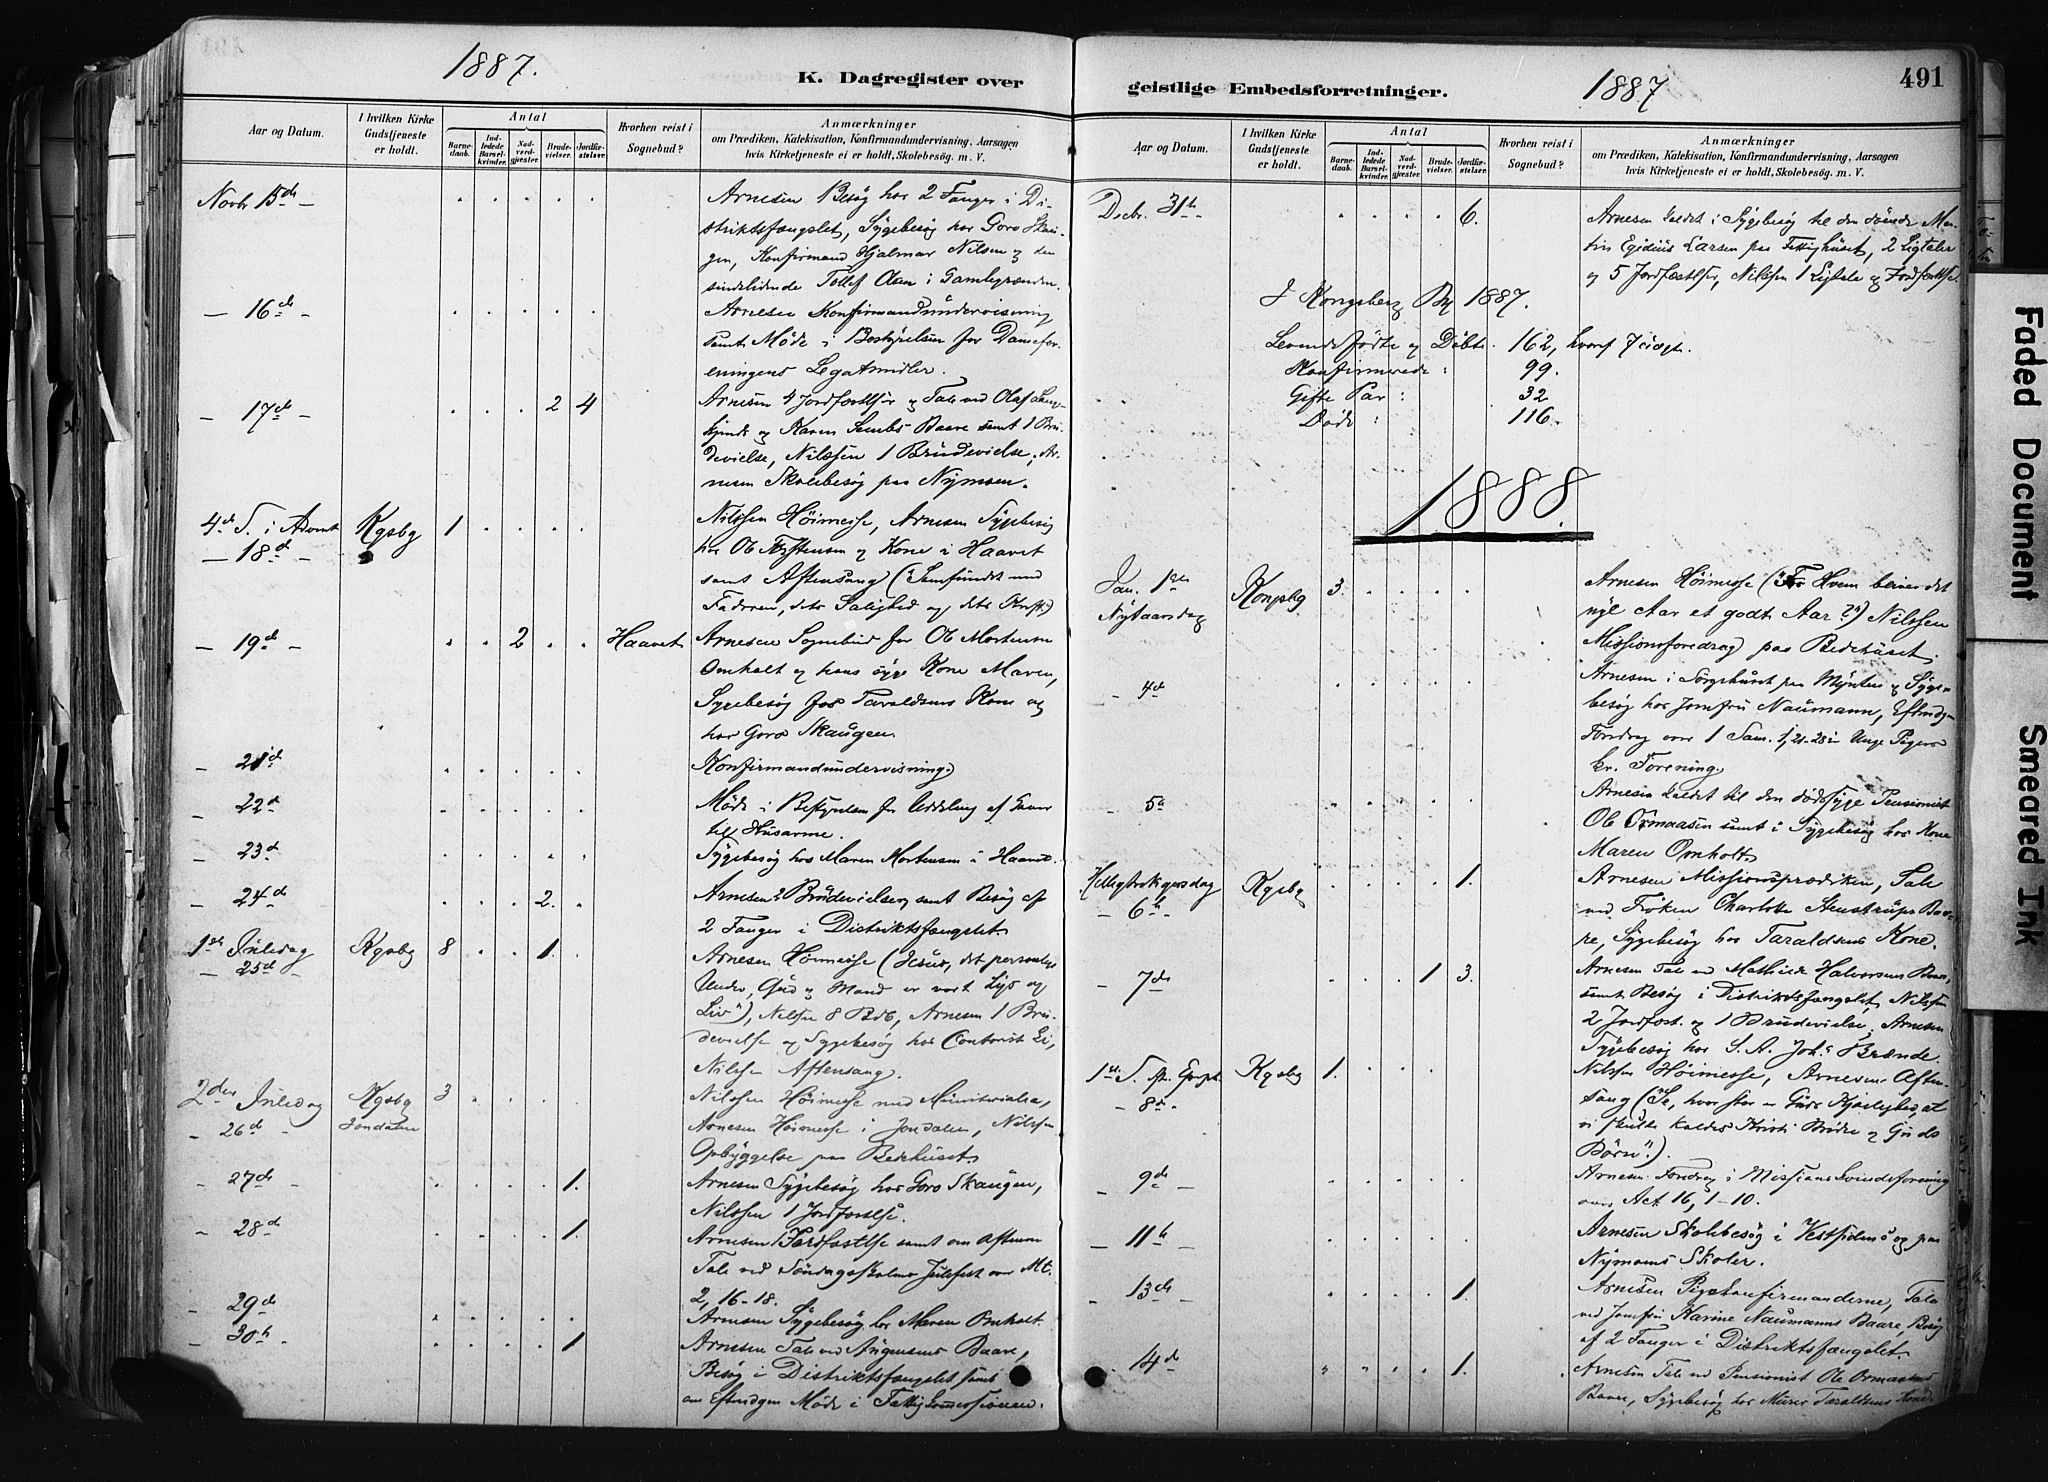 1887.
K. Dagregister over
Aar og Datum.
I hvilken Kirke Gudstjeneste er holdt.
Antal
Barnedaab.
Indledede Barselkvinder.
Nadverdgjester.
Brudevielser.
Jordfæstelser.
Hvorhen reist i Sognebud?
Anmærkninger
om Prædiken, Katekisation, Konfirmandundervisning, Aarsagen
hvis Kirketjeneste ei er holdt, Skolebesøg. m. V.
Novbr 15de
Arnesen Besøg hos 2 Fanger i Di-
striktsfængslet, Sygebesøg hos Goro Skau-
gen, Konfirmand Hjalmar Nilsen og den
sindslidende Tollef Olsen i
— 16de —
Arnesen Konfirmandundervisning
samt Møde i Bestyrelsen for Damefor-
eningens Legatmidler.
— 17de — 2 4
Arnesen 4 Jordfæstelser og Tale ved Olaf
og Karen Baare samt 1 Bru-
devielse, Nilssen 1 Brudevielse, Ar-
nesen Skolebesøg paa Nymoen.
4de S. i Advent Kgsbg 1
— 18de —
Nilssen Høimesse, Arnesen Sygebesøg
hos Ole og Kone i Haavet
samt Aftensang (Samfundet med
Faderen, dets Salighed og dets Kraft.)
— 19de — 2 Haavet
Arnesen Sognebud for Ole Mortensen
Omholt og hans syge Kone Maren,
Sygebesøg hos Taraldsens Kone og
hos Goro Skaugen.
— 21de
Konfirmandundervisning.
— 22de
Møde i Bestyrelsen for Uddeling af
til Husarme.
— 23de
Sygebesøg hos Maren Mortensen i Haavet.
— 24de 2.
Arnesen 2 Brudevielser, samt Besøg af
2 Fanger i Distriktsfængslet.
1ste Juledag Kgsbg 8 1.
— 25de
Arnesen Høimesse (Jesus, det personlige
Under, Gud og Mand er vort Lys og
Liv"), Nilssen 8 Barnedb, Arnesen 1 Bru-
devielse og Sygebesøg hos Li,
Nilssen Aftensang.
2den Juledag Kgsbg 3
— 26de — Jondalen
Nilssen Høimesse med Ministerialia,
Arnesen Høimesse i Jondalen, Nilssen
Opbyggelse paa Bedehuset.
— 27de 1.
Arnesen Sygebesøg hos Goro Skaugen,
Nilssen 1 Jordfæstelse.
— 28de 1.
Arnesen 1 Jordfæstelse samt om Aftenen
Tale ved Søndagsskolens Julefest over Mt.
2, 16-18.
— 29de
Arnesen Sygebesøg hos Maren Omholt.
— 30te 1
Arnesen Tale ved Baare,
Besøg i Distriktsfængslet samt
om Eftmdgen Møde i Fattigkommissionen.
geistlige Embedsforretninger.
1887
491
Aar og Datum.
I hvilken Kirke Gudstjeneste er holdt.
Antal
Barnedaab.
Indledede Barselkvinder.
Nadverdgjester.
Brudevielser.
Jordfæstelser.
Hvorhen reist i Sognebud?
Anmærkninger
om Prædiken, Katekisation, Konfirmandundervisning, Aarsagen
hvis Kirketjeneste ei er holdt, Skolebesøg. m. V.
Decbr. 31te 6.
Arnesen kaldet i Sygebesøg til den døende Mar-
tin Egidius Larsen paa Fattighuset, 2 Ligtaler
og 5 Jordfæstelser, Nilssen 1 Ligtale og Jordfæstelse.
I Kongsberg By 1887.
Levende fødte og Døbte 162, hvoraf 7 uægte.
Konfirmerede : 99.
Gifte Par : 32
Døde : 116.
1888.
Jan. 1ste Kongsbg 3.
Nytaarsdag
Arnesen Høimesse ("For Hvem bliver det
nye Aar et godt Aar?") Nilssen
Missionsforedrag paa Bedehuset.
— 4de
Arnesen i Sørgehuset paa Mynten og Syge-
besøg hos Jomfru Naumann, Eftmdg.
Foredrag over 1 Sam. 1, 21-28 i Unge Pigers
kr. Forening.
— 5te
Arnesen kaldet til den dødssyge Pensionist
Ole Ormaasen samt i Sygebesøg hos Kone
Maren Omholt.
Helligtrekongersdag Kgsbg 1.
— 6te
Arnesen Missionsprædiken, Tale
ved Frøken Charlotte Stenstrups Baa-
re, Sygebesøg hos Taraldsens Kone.
— 7de 1 3.
Arnesen Tale ved Mathilde Halvorsens Baare,
samt Besøg i Distriktsfængslet, Nilssen
2 Jordfæst. og 1 Brudevielse. Arnesen
Sygebesøg hos S. A. Johs Brænde.
1ste S. eft. Epiph. Kgsbg 1.
— 8de —
Nilssen Høimesse, Arnesen Aften-
sang ("Se, hvor stor en Guds Kjærlighed, at
vi skulle kaldes Kristi Brødre og Guds
Børn".).
— 9de
Arnesen Foredrag i Missions Kvindeforening
over Act 16, 1-10.
— 11te —
Arnesen Skolebesøg i Vestsidens og paa
Nymoens Skoler.
— 13de 1.
Arnesen Pigekonfirmanderne, Tale
ved Jomfru Karine Naumanns Baare, Besøg
af 2 Fanger i Distriktsfængslet.
— 14de 1.
Arnesen Tale ved Pensionist Ole Ormaasens
Baare, Sygebesøg hos Murer Taraldsens Kone.
Faded Document
Smeared Ink